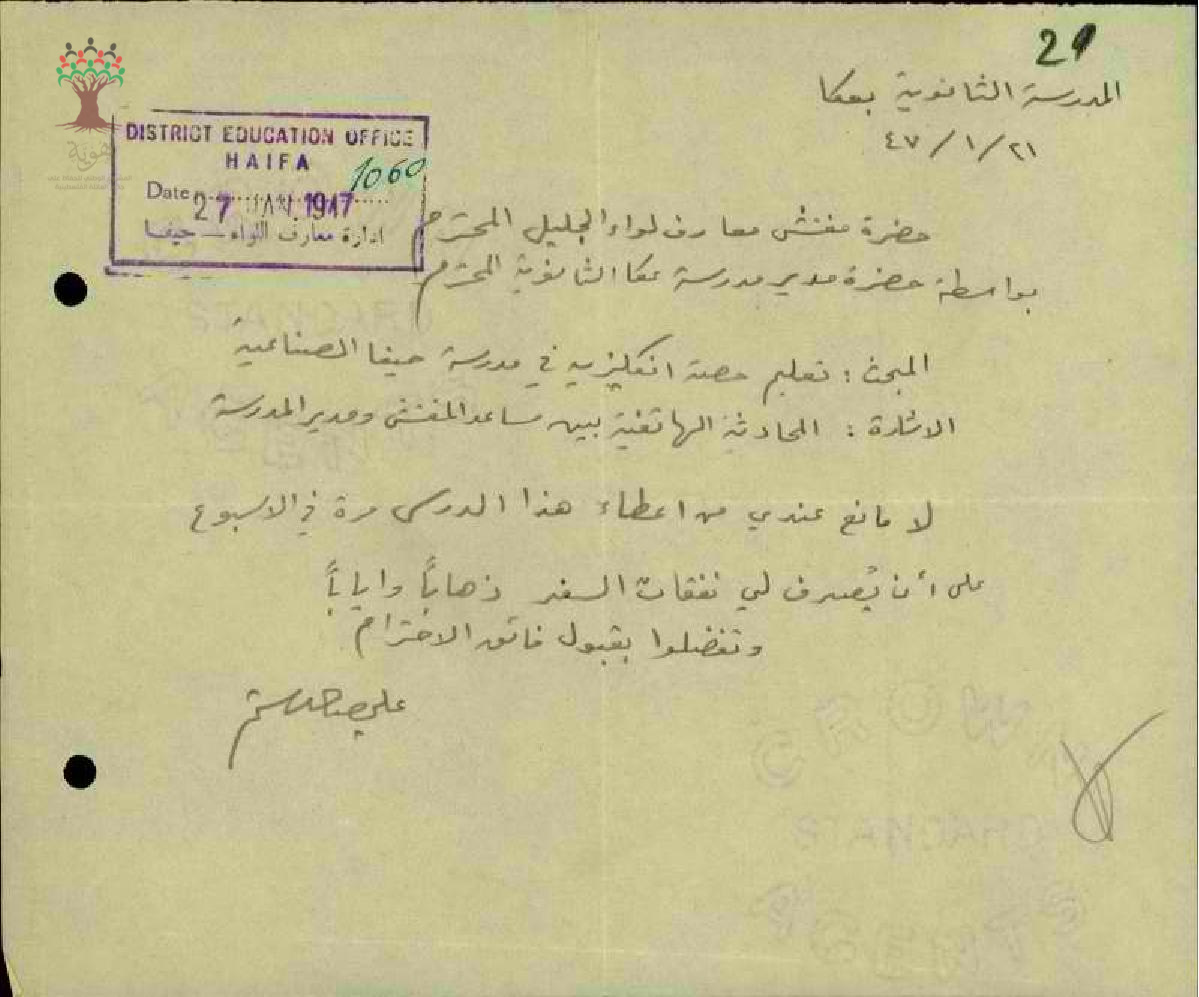 21
المدرسة الثانوية بعكا
٤٧/١/٢١
DISTRICT EDUCATION OFFICE
HAIFA
1060
Date 27 JAN 1947
ادارة معارف اللواء - حيفا
هوية
حضرة مفتش معارف لواء الجليل المحترم
بواسطة حضرة مدير مدرسة عكا الثانوية المحترم
المبحث : تعليم حصة انكليزية في مدرسة حيفا الصناعية
الاشارة : المحادثة الهاتفية بين مساعد المفتش ومدير المدرسة
لا مانع عندي من اعطاء هذا الدرس مرة في الاسبوع
على أن تُصرف لي نفقات السفر ذهاباً واياباً
وتفضلوا بقبول فائق الاحترام
علي
CROWN
STANDARD